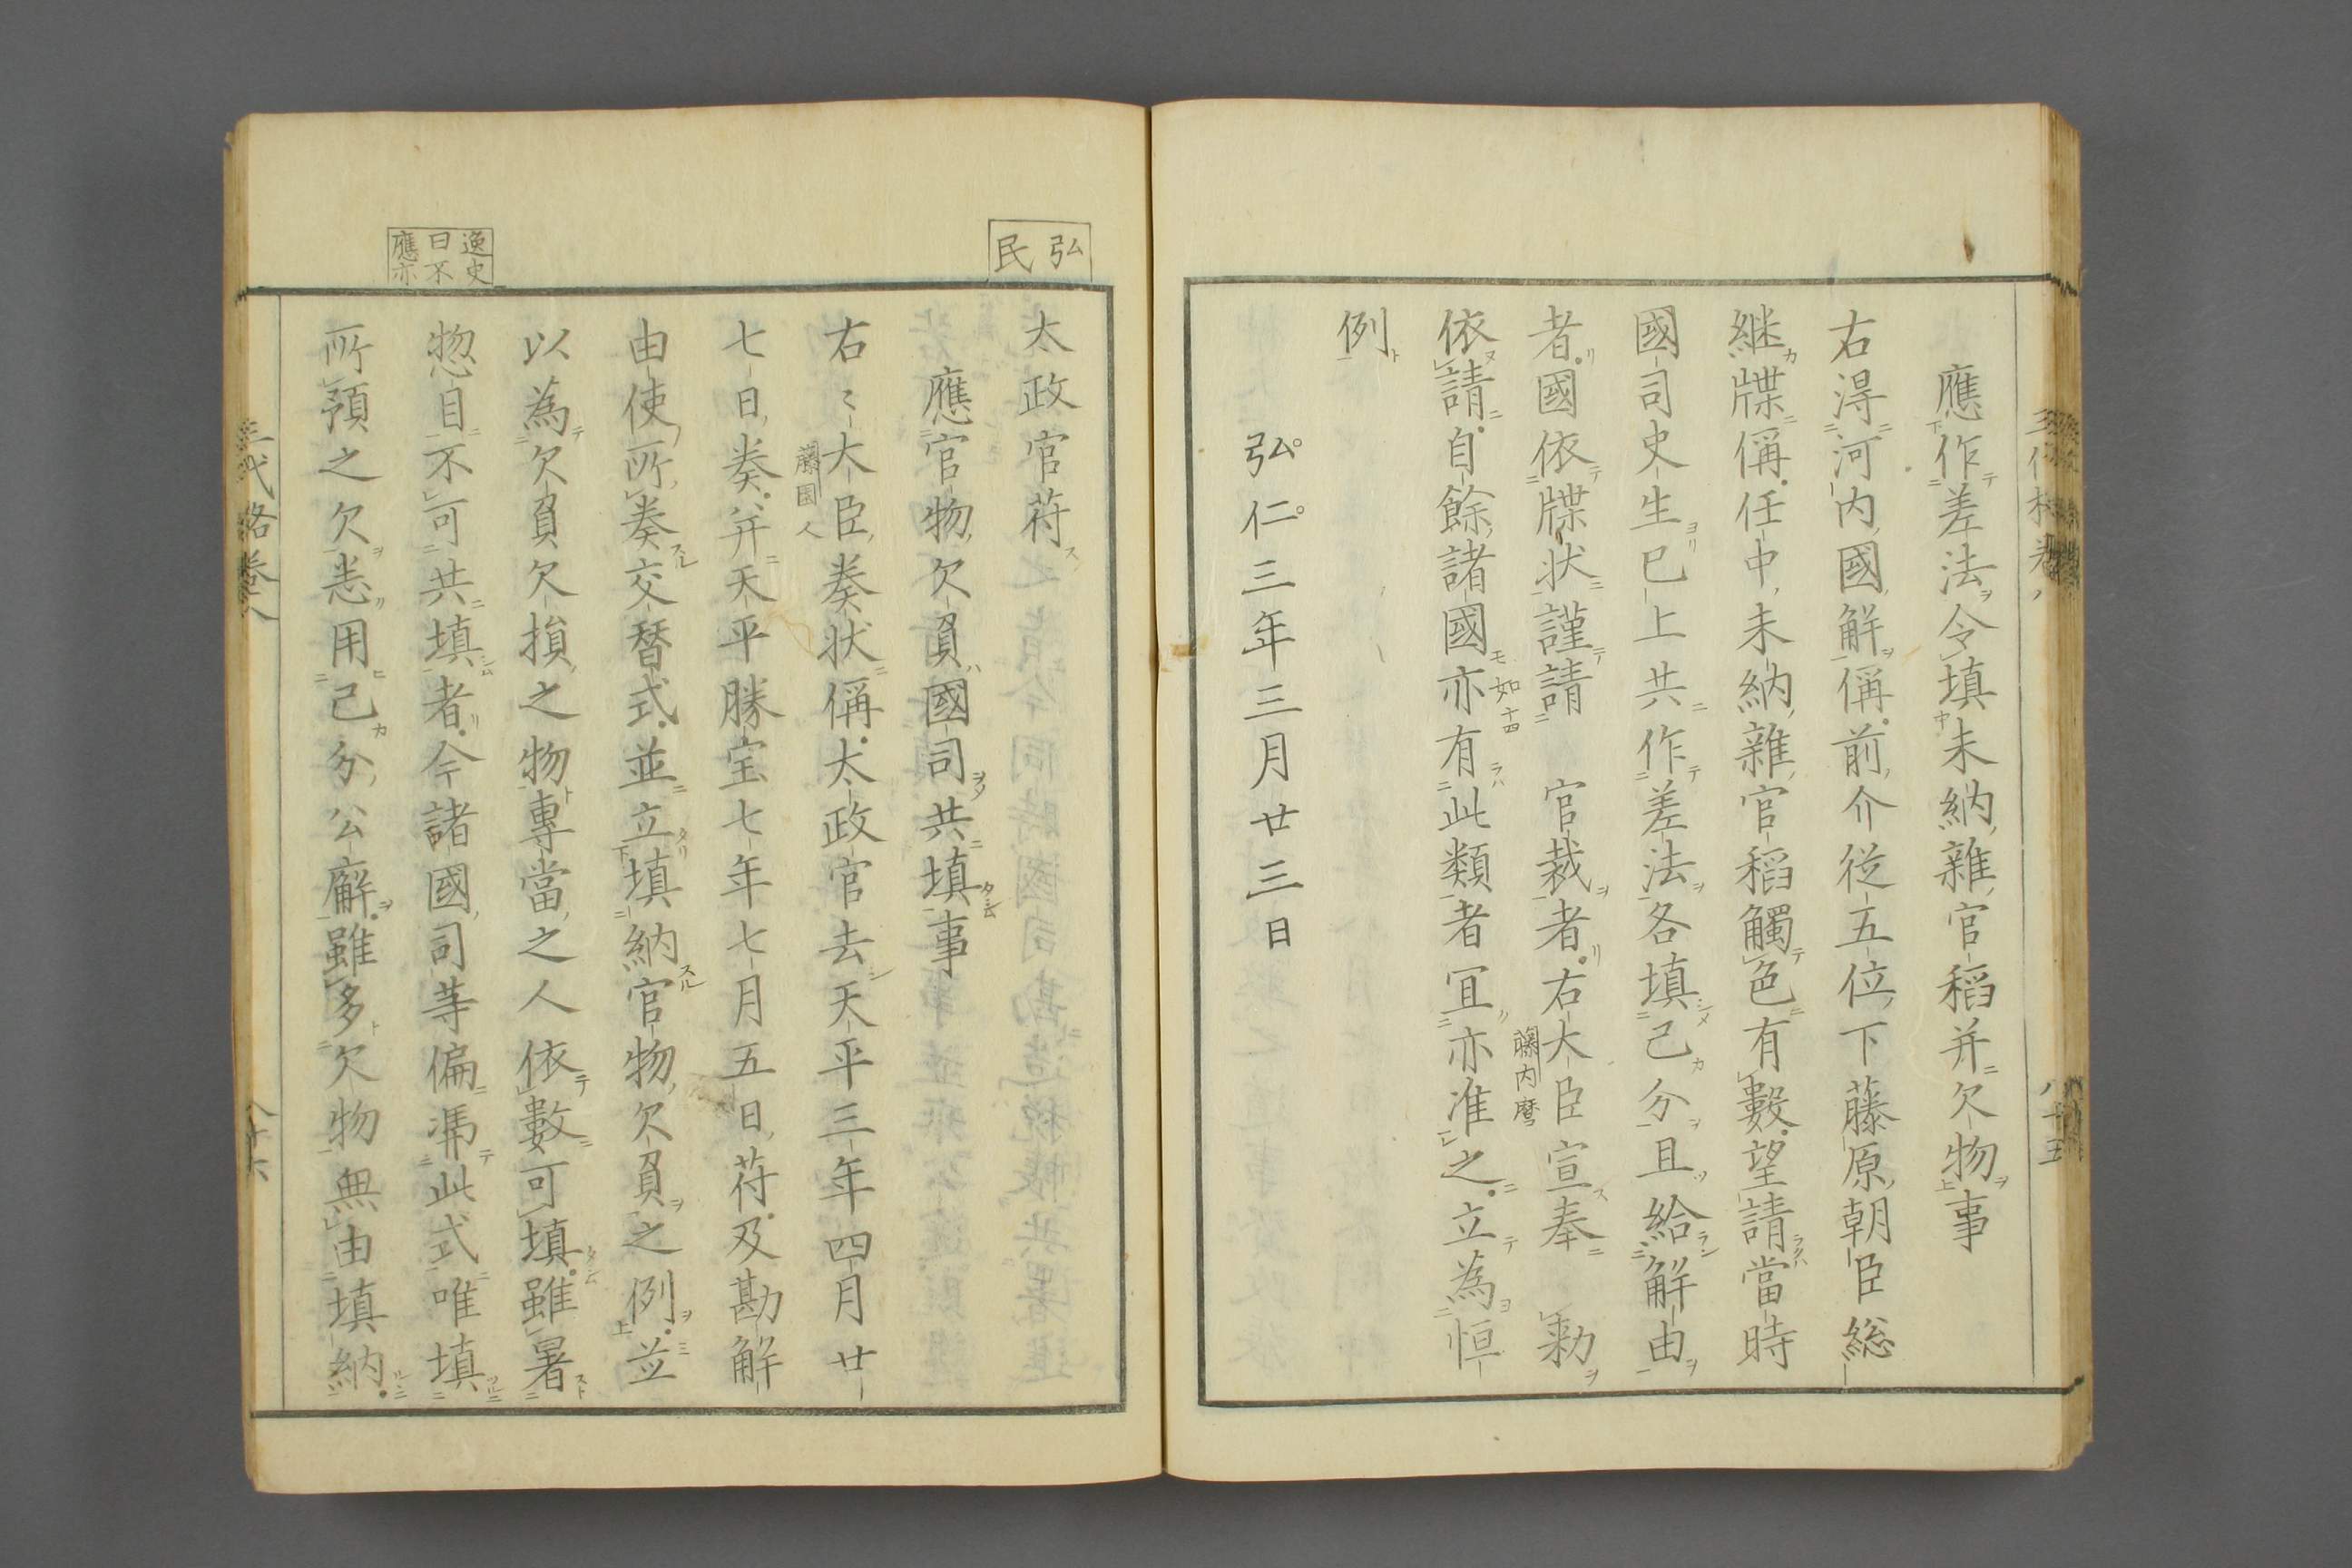 應作差法令填未納雜官稻并欠物事
右淂河内國解偁前介従五位下藤原朝臣総
継牒偁任中未納雜官稻觸色有數望請當時
國司史生已上共作差法各填己分且給解由
者國依牒状謹請　官裁者右大臣宣奉　勅
藤内麿
依請自餘諸國亦有此類者冝亦准之立為恒
如十四
例
弘仁三年三月廿三日
弘
民
太政官苻
應官物欠負國司共填事
右〻大臣奏状偁太政官去天平三年四月廿
藤園人
七日奏并天平勝宝七年七月五日苻及勘解
由使所奏交替式並立填納官物欠負之例並
以為欠負欠損之物專當之人依數可填雖署
逸史
曰不
應亦
惣目不可共填者今諸國司等偏慿此式唯填
所預之欠恙用己分公廨雖多欠物無由填納
三代格巻八
八十六